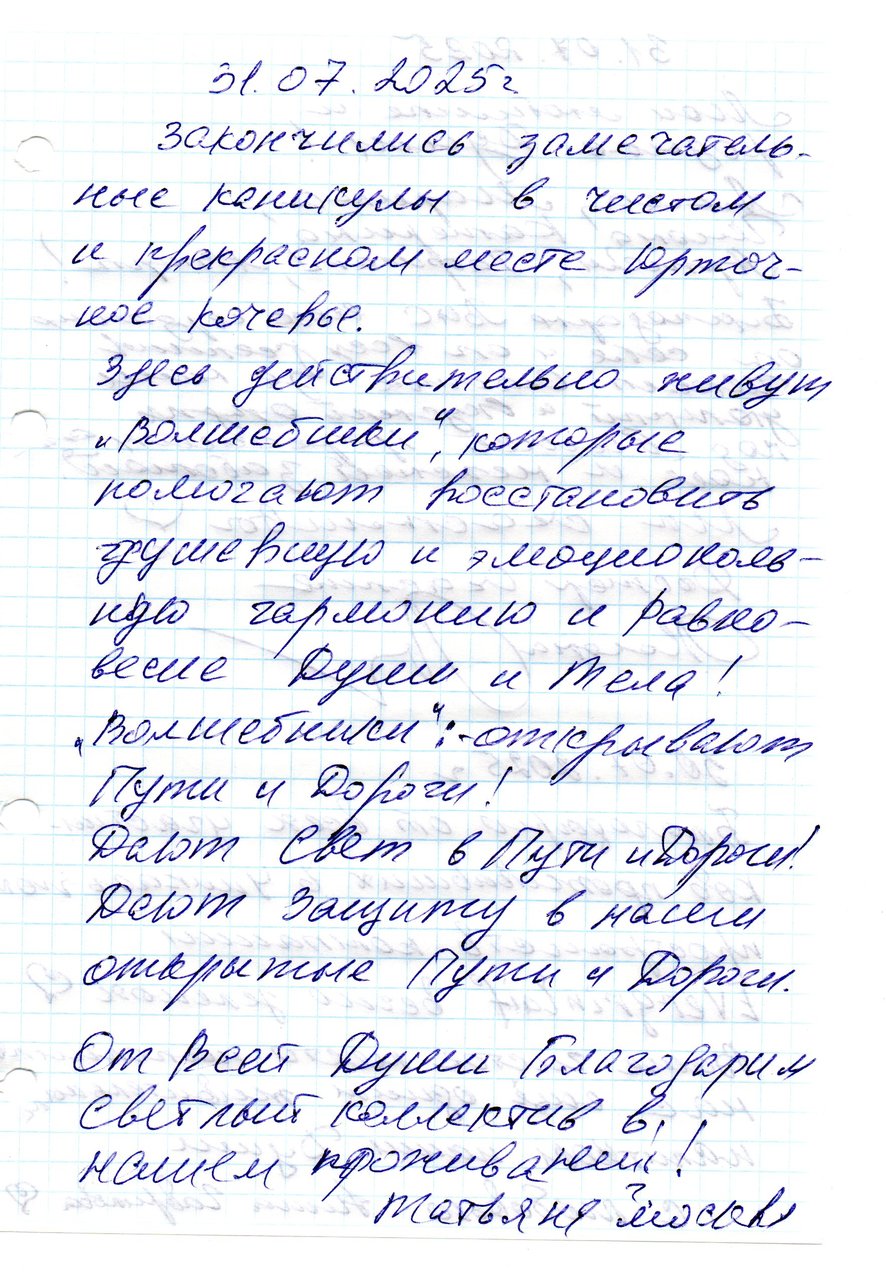 31.07.2025г.
Закончились замечатель-
ные каникулы в чистом
и прекрасном месте Юрточ-
ное кочевье.
Здесь действительно живут
„Волшебники", которые
помогают восстановить
душевную и эмоциональ-
ную гармонию и равно-
весие Души и Тела!
„Волшебники":-открывают
Пути и Дороги!
Дают Свет в Пути и Дороги!
Дают Защиту в наши
открытые Пути и Дороги.
От Всей Души Благодарим
светлый коллектив в
нашем проживании!
Татьяна Москва